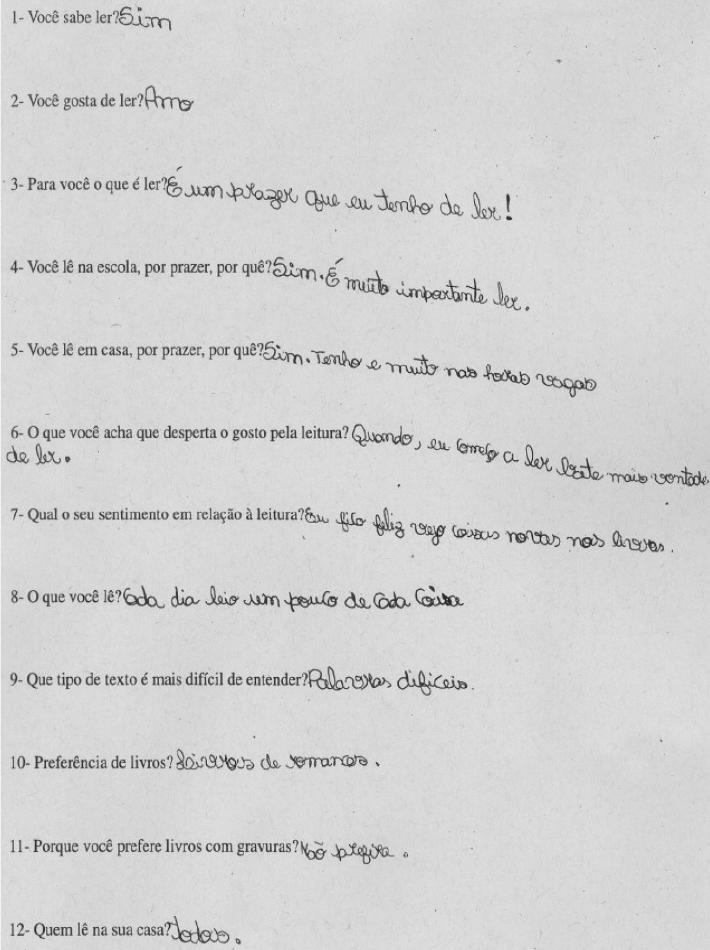 1- Você sabe ler? Sim
2- Você gosta de ler? Amo
3- Para você o que é ler? É um prazer que eu tenho de ler!
4- Você lê na escola, por prazer, por quê? Sim. É muito importante ler.
5- Você lê em casa, por prazer, por quê? Sim. Tenho e muito nas horas vagas
6- O que você acha que desperta o gosto pela leitura? Quando, eu começo a ler mais vontade
de ler.
7- Qual o seu sentimento em relação à leitura? Eu fico feliz vejo coisas novas nos livros.
8- O que você lê? Cada dia leio um pouco de cada coisa
9- Que tipo de texto é mais difícil de entender? Palavras difíceis.
10- Preferência de livros? de romances.
11- Porque você prefere livros com gravuras? Não
12- Quem lê na sua casa? Todos.